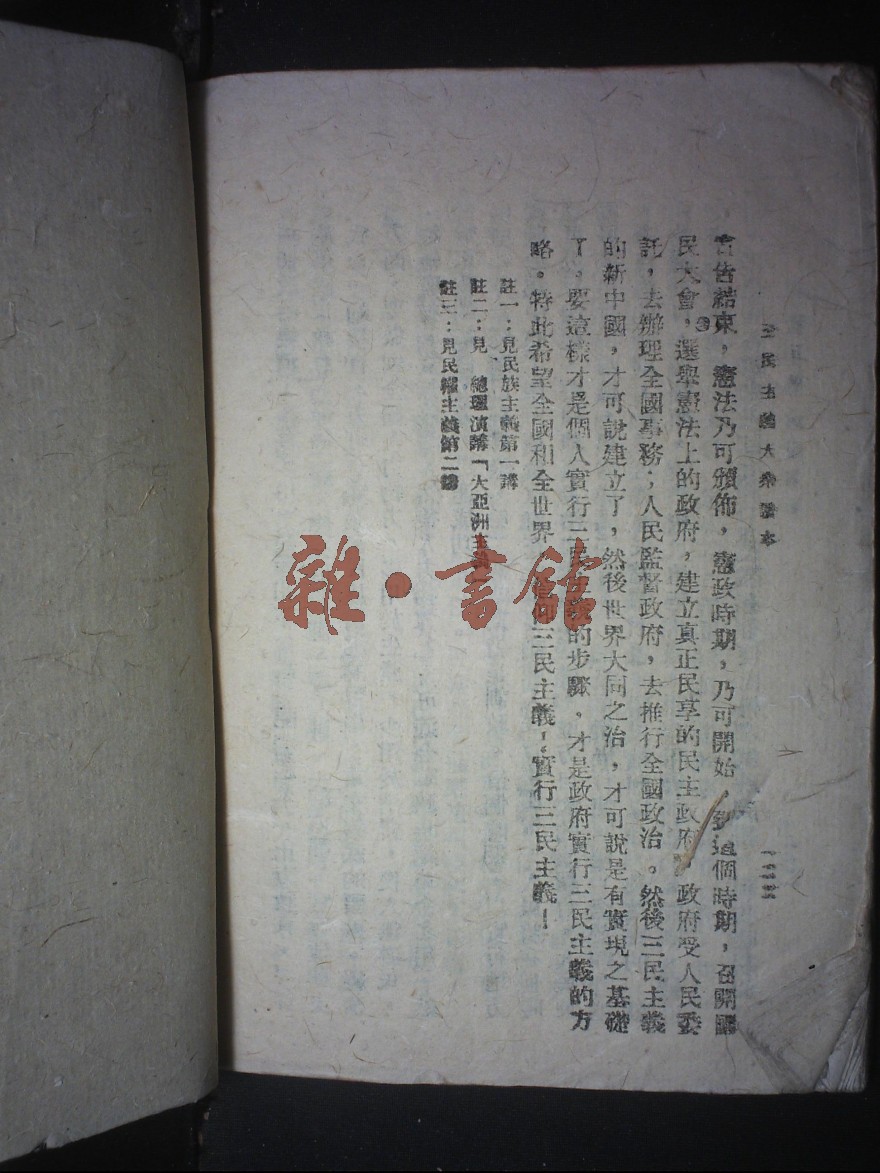 三民主義大衆讀本
宣告結束，憲法乃可頒佈，憲政時期，乃可開始，到這個時期，召開國
民大會，選舉憲法上的政府，建立真正民享的民主政府，政府受人民委
託，去辦理全國事務；人民監督政府，去推行全國政治。然後三民主義
的新中國，才可說建立了，然後世界大同之治，才可說是有實現之基礎
了。要這樣才是個人實行三民主義的步驟，才是政府實行三民主義的方
略。特此希望全國和全世界，信仰三民主義！實行三民主義！
註一：見民族主義第一講
註二：見　總理演講「大亞洲主義
註三：見民權主義第二講
雜·書館